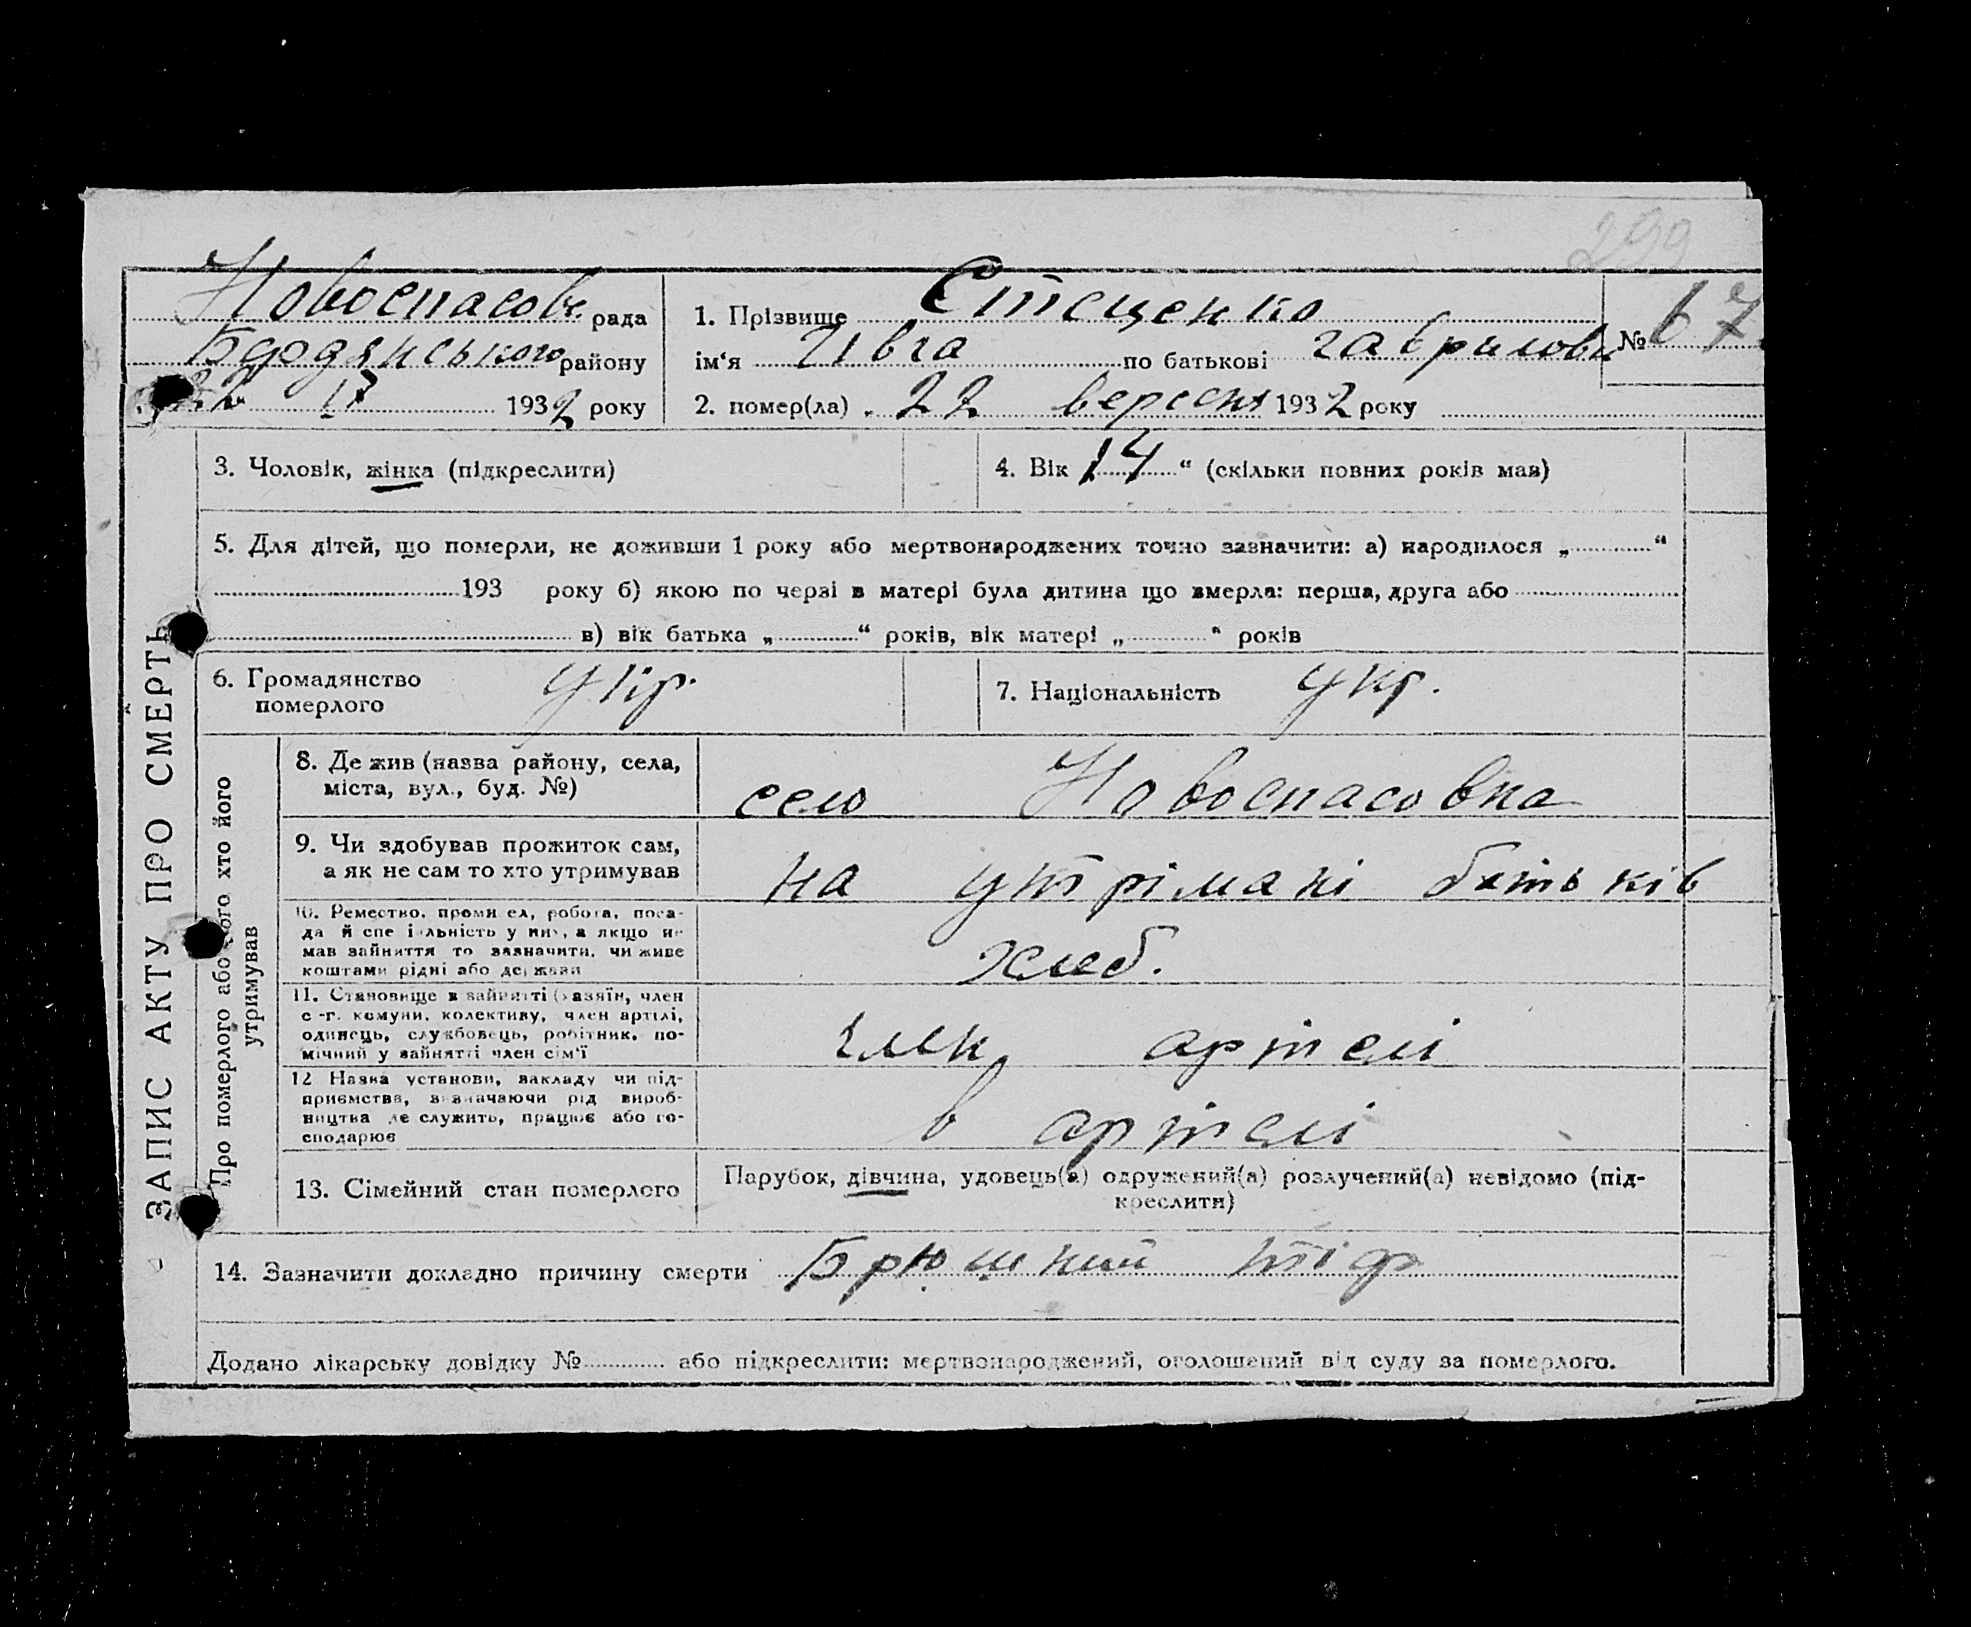 299
Новоспасовс. рада
Бердянського району
22 1932 року
1. Прізвище Стеценко
ім‘я Ивга по батькові гаврилови
№ 67
2. помер(ла) „ 22 вересня 1932 року
3. Чоловік, жінка (підкреслити)
4. Вік 14 “ (скільки повних років мав)
5. Для дітей, що померли, не доживши 1 року або мертвонароджених точно зазначити: а) народилося „ “
193 року б) якою по черзі в матері була дитина що вмерла: перша, друга або
в) вік батька „ “ років, вік матері „ “ років
6. Громадянство
померлого
укр.
7. Національність укр.
ЗАПИС АКТУ ПРО СМЕРТЬ
Про померлого або того хто його
утримував
8. Де жив (назва району, села,
міста, вул., буд. №)
село Новоспасовка
9. Чи здобував прожиток сам,
а як не сам то хто утримував
на утрімані батьків
10. Ремество, промисел, робота, поса-
да й спеціяльність у них, а якщо не
мав зайняття то зазначити, чи живе
коштами рідні або держави
хлеб.
11. Становище в зайнятті (хазяїн, член
с.-г. комуни, колективу, член артілі,
одинець, службовець, робітник, по-
мічний у зайнятті член сім‘ї
член артелі
12 Назва установи, закладу чи під-
приємства, зазначаючи рід вироб-
ництва де служить, працює або го-
сподарює
в артелі
13. Сімейний стан померлого
Парубок, дівчина, удовець(а) одружений(а) розлучений(а) невідомо (під-
креслити)
14. Зазначити докладно причину смерти Брюшний тіф
Додано лікарську довідку № або підкреслити: мертвонароджений, оголошений від суду за померлого.